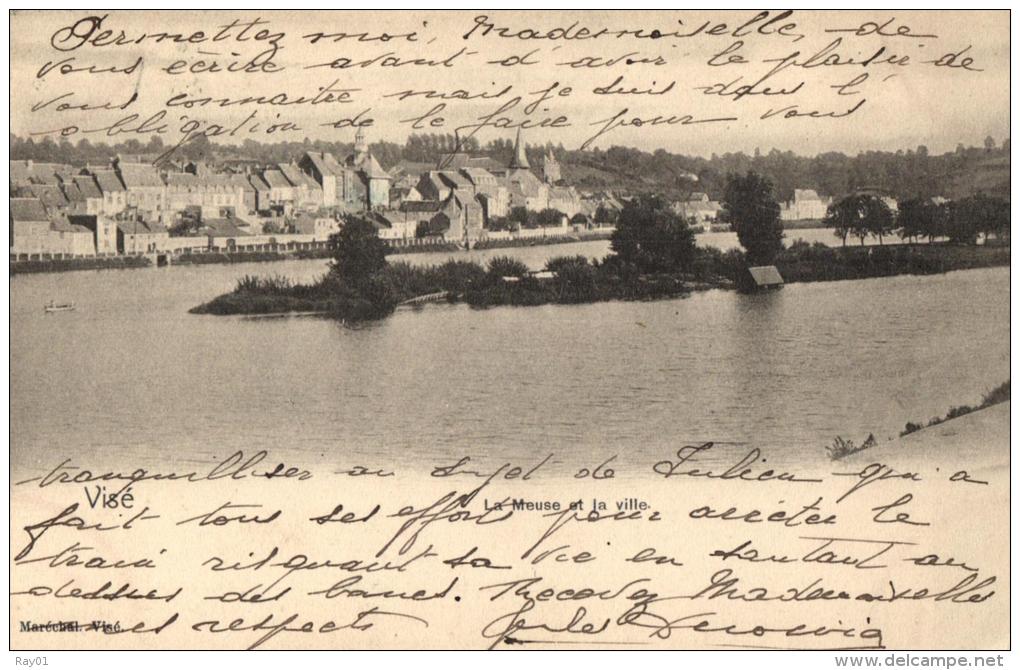 Permettez moi, Mademoiselle, de
vous écrire avant d'avoir le plaisir de
vous connaitre mais je suis dans l'
obligation de le faire pour vous
tranquilliser au sujet de Julien qui a
Visé
La Meuse et la ville.
fait tous ses efforts pour arrêter le
train risquant sa vie en sautant au
dessus des bancs. Recevez Mademoiselle
Maréchal. Visé.
mes respects Jules
Ray01
http://www.delcampe.net